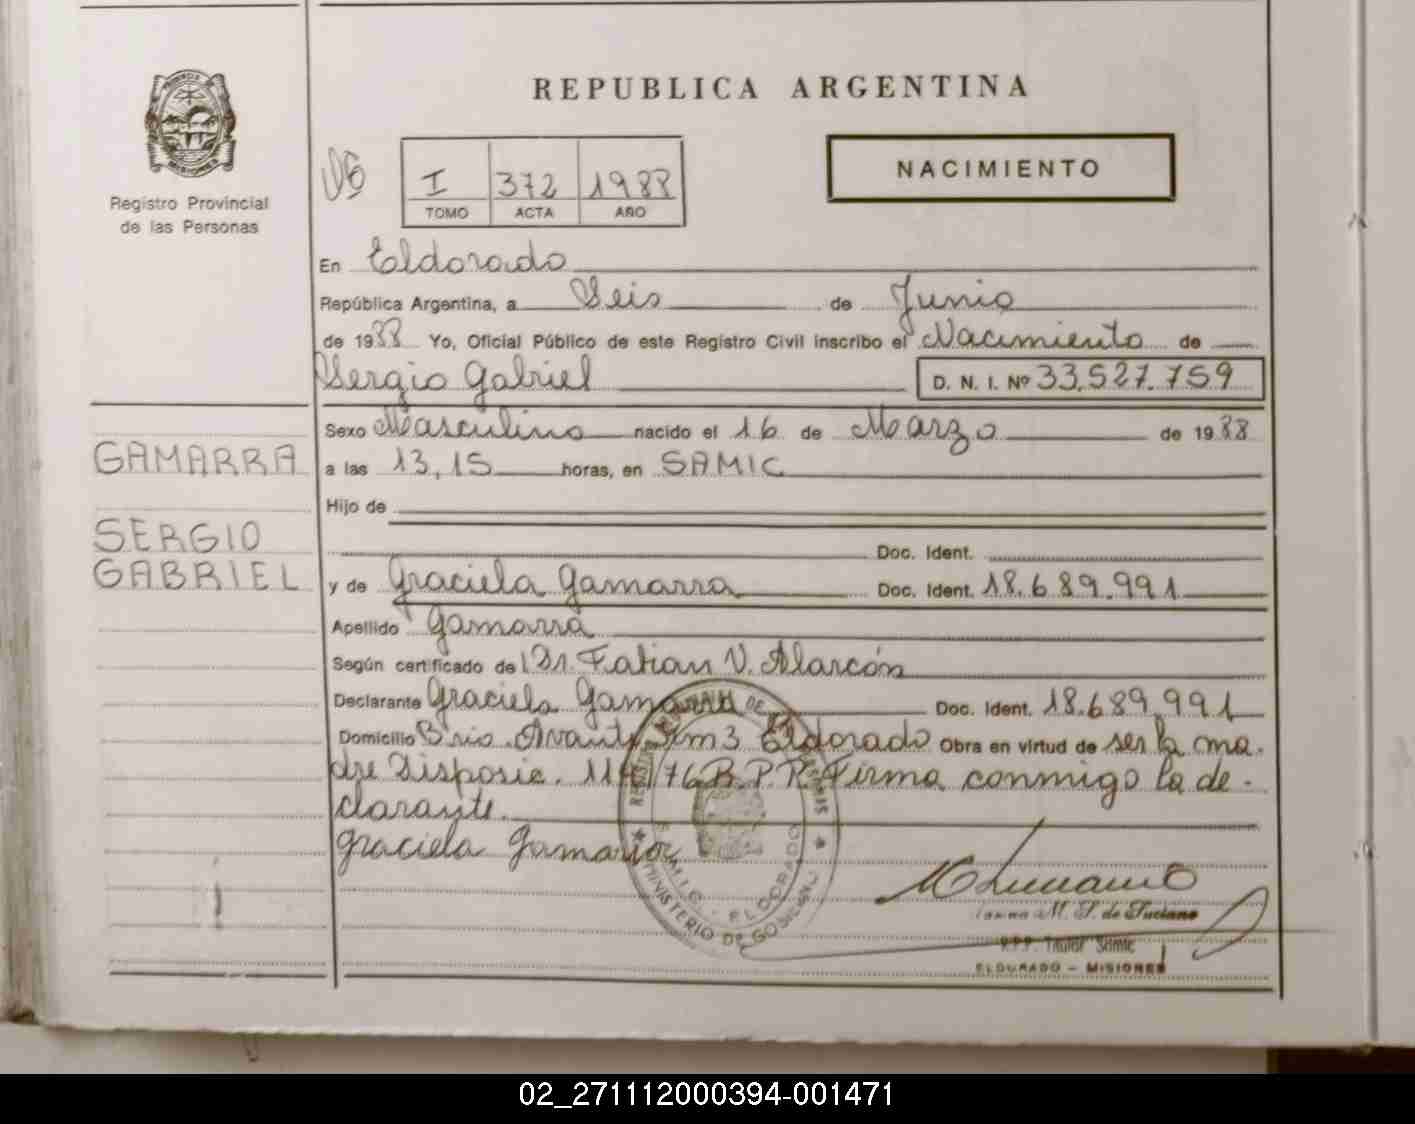 REPUBLICA ARGENTINA
Registro Provincial
de las Personas
I 372 1988
TOMO ACTA AÑO
NACIMIENTO
En Eldorado
República Argentina, a Seis de Junio
de 1988 Yo, Oficial Público de este Registro Civil inscribo el Nacimiento de
Sergio Gabriel D. N. I. Nº 33.527.759
Sexo Masculino nacido el 16 de Marzo de 1988
GAMARRA
a las 13,15 horas, en SAMIC
Hijo de
SERGIO
GABRIEL
Doc. Ident.
y de Graciela Gamarra Doc. Ident. 18.689.991
Apellido Gamarra
Según certificado de Dr. Fabian V. Alarcón
Declarante Graciela Gamarra Doc. Ident. 18.689.991
Domicilio Brio. Avanti Km3 Eldorado Obra en virtud de ser la ma-
dre Disposic. 76 B.P.P. Firma conmigo la de-
clarante.
Graciela Gamarra
MINISTERIO DE GOBIERNO
ELDORADO
M. S. de Luciano
ELDORADO – MISIONES
02_271112000394-001471